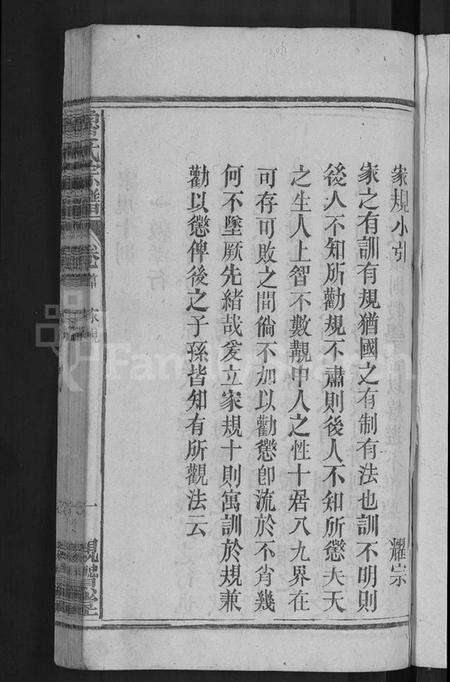 家規小引 耀宗
家之有訓有規猶國之有制有法也訓不明則
後人不知所勸規不肅則後人不知所懲夫天
之生人上智不數覯中人之性十居八九界在
可存可敗之間倘不加以勸懲卽流於不肖幾
何不墜厥先緒哉爰立家規十則寓訓於規兼
勸以懲俾後之子孫皆知有所觀法云
氏宗譜 卷首 一
FamilySearch